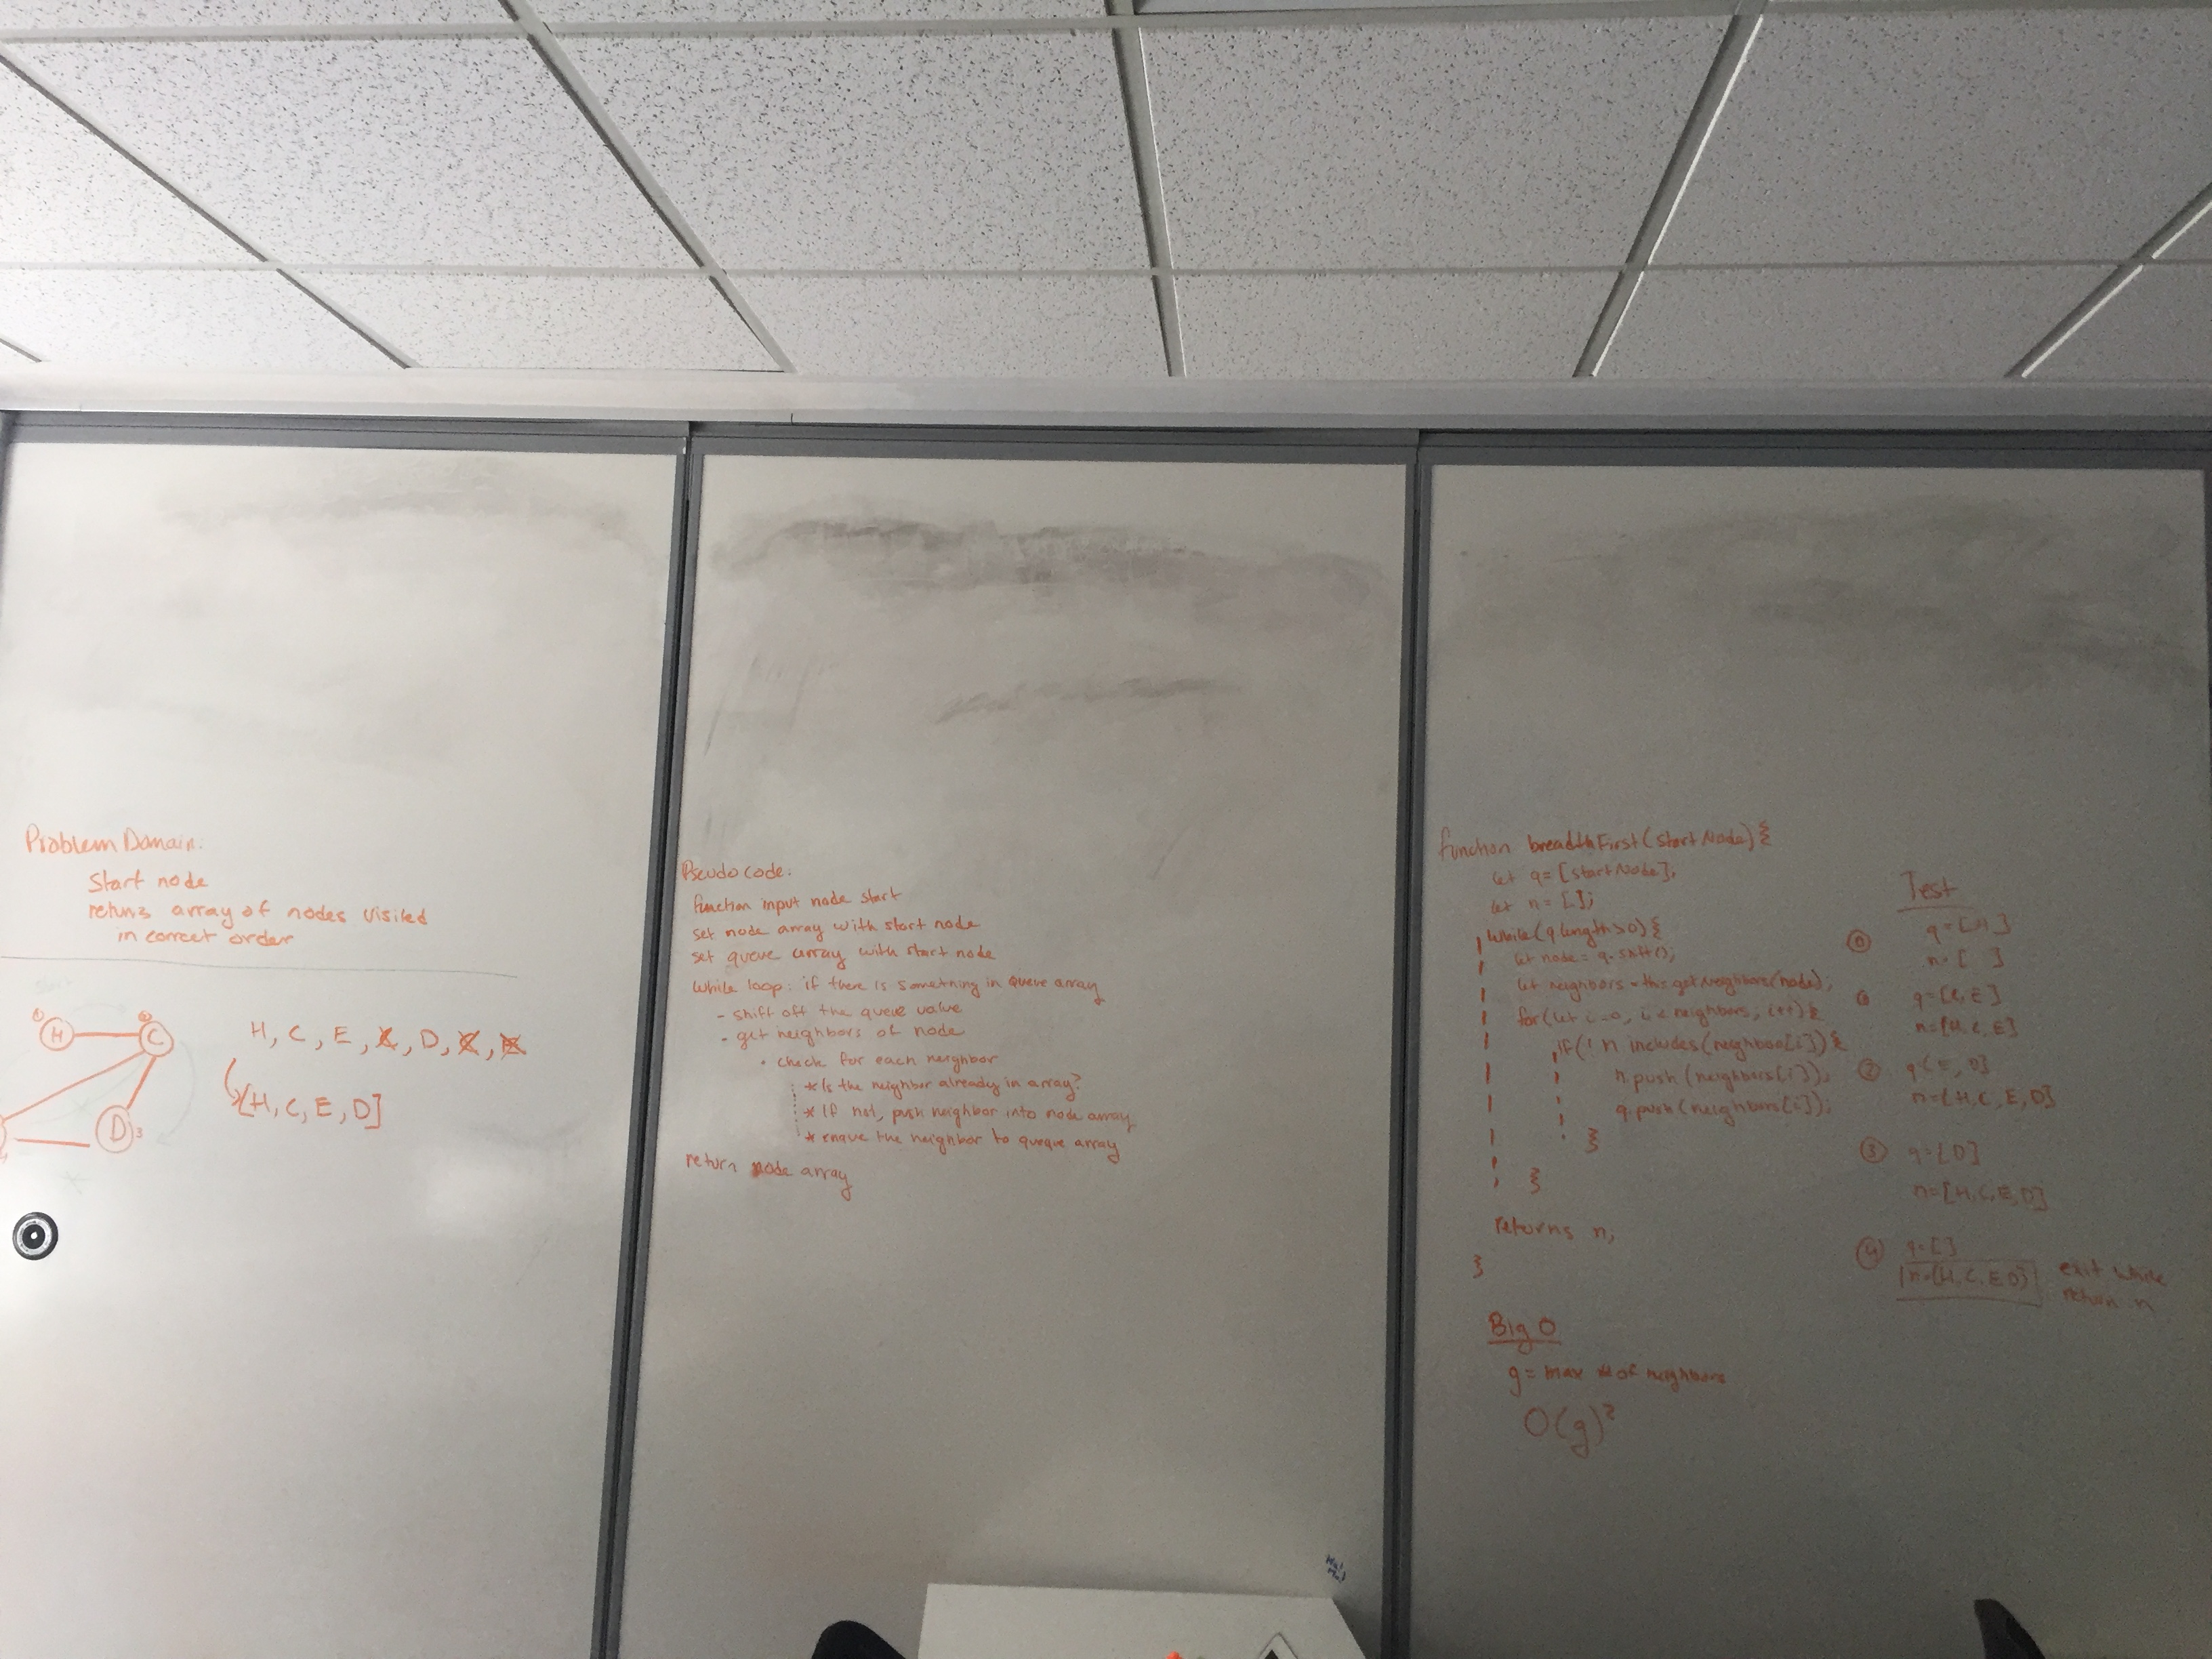 Problem Domain:
Start node
returns array of nodes visited
in correct order
H
C
D
3
H, C, E, C, D, C, E
[H, C, E, D]
Pseudo code:
function input node start
set node array with start node
set queue array with start node
while loop: if there is something in queue array
- shift off the queue value
- get neighbors of node
• check for each neighbor
* Is the neighbor already in array?
* If not, push neighbor into node array
* enque the neighbor to queque array
return node array
function breadthFirst(startNode){
let q = [startNode];
let n = [];
while(q.length>0){
let node = q.shift();
let neighbors = this.getNeighbors(node);
for(let i=0, i < neighbors, i++){
if(! n includes(neighbor[i]){
n.push(neighbors[i]);
q.push(neighbors[i]);
}
}
returns n;
}
Big O
g = max # of neighbors
O(g)²
Test
0
q=[H]
n=[ ]
q=[C,E]
n=[H,C,E]
2
q=[E, D]
n=[H,C,E,D]
3
q=[D]
n=[H,C,E,D]
4
q=[]
n=[H,C,E,D]
exit while
return n